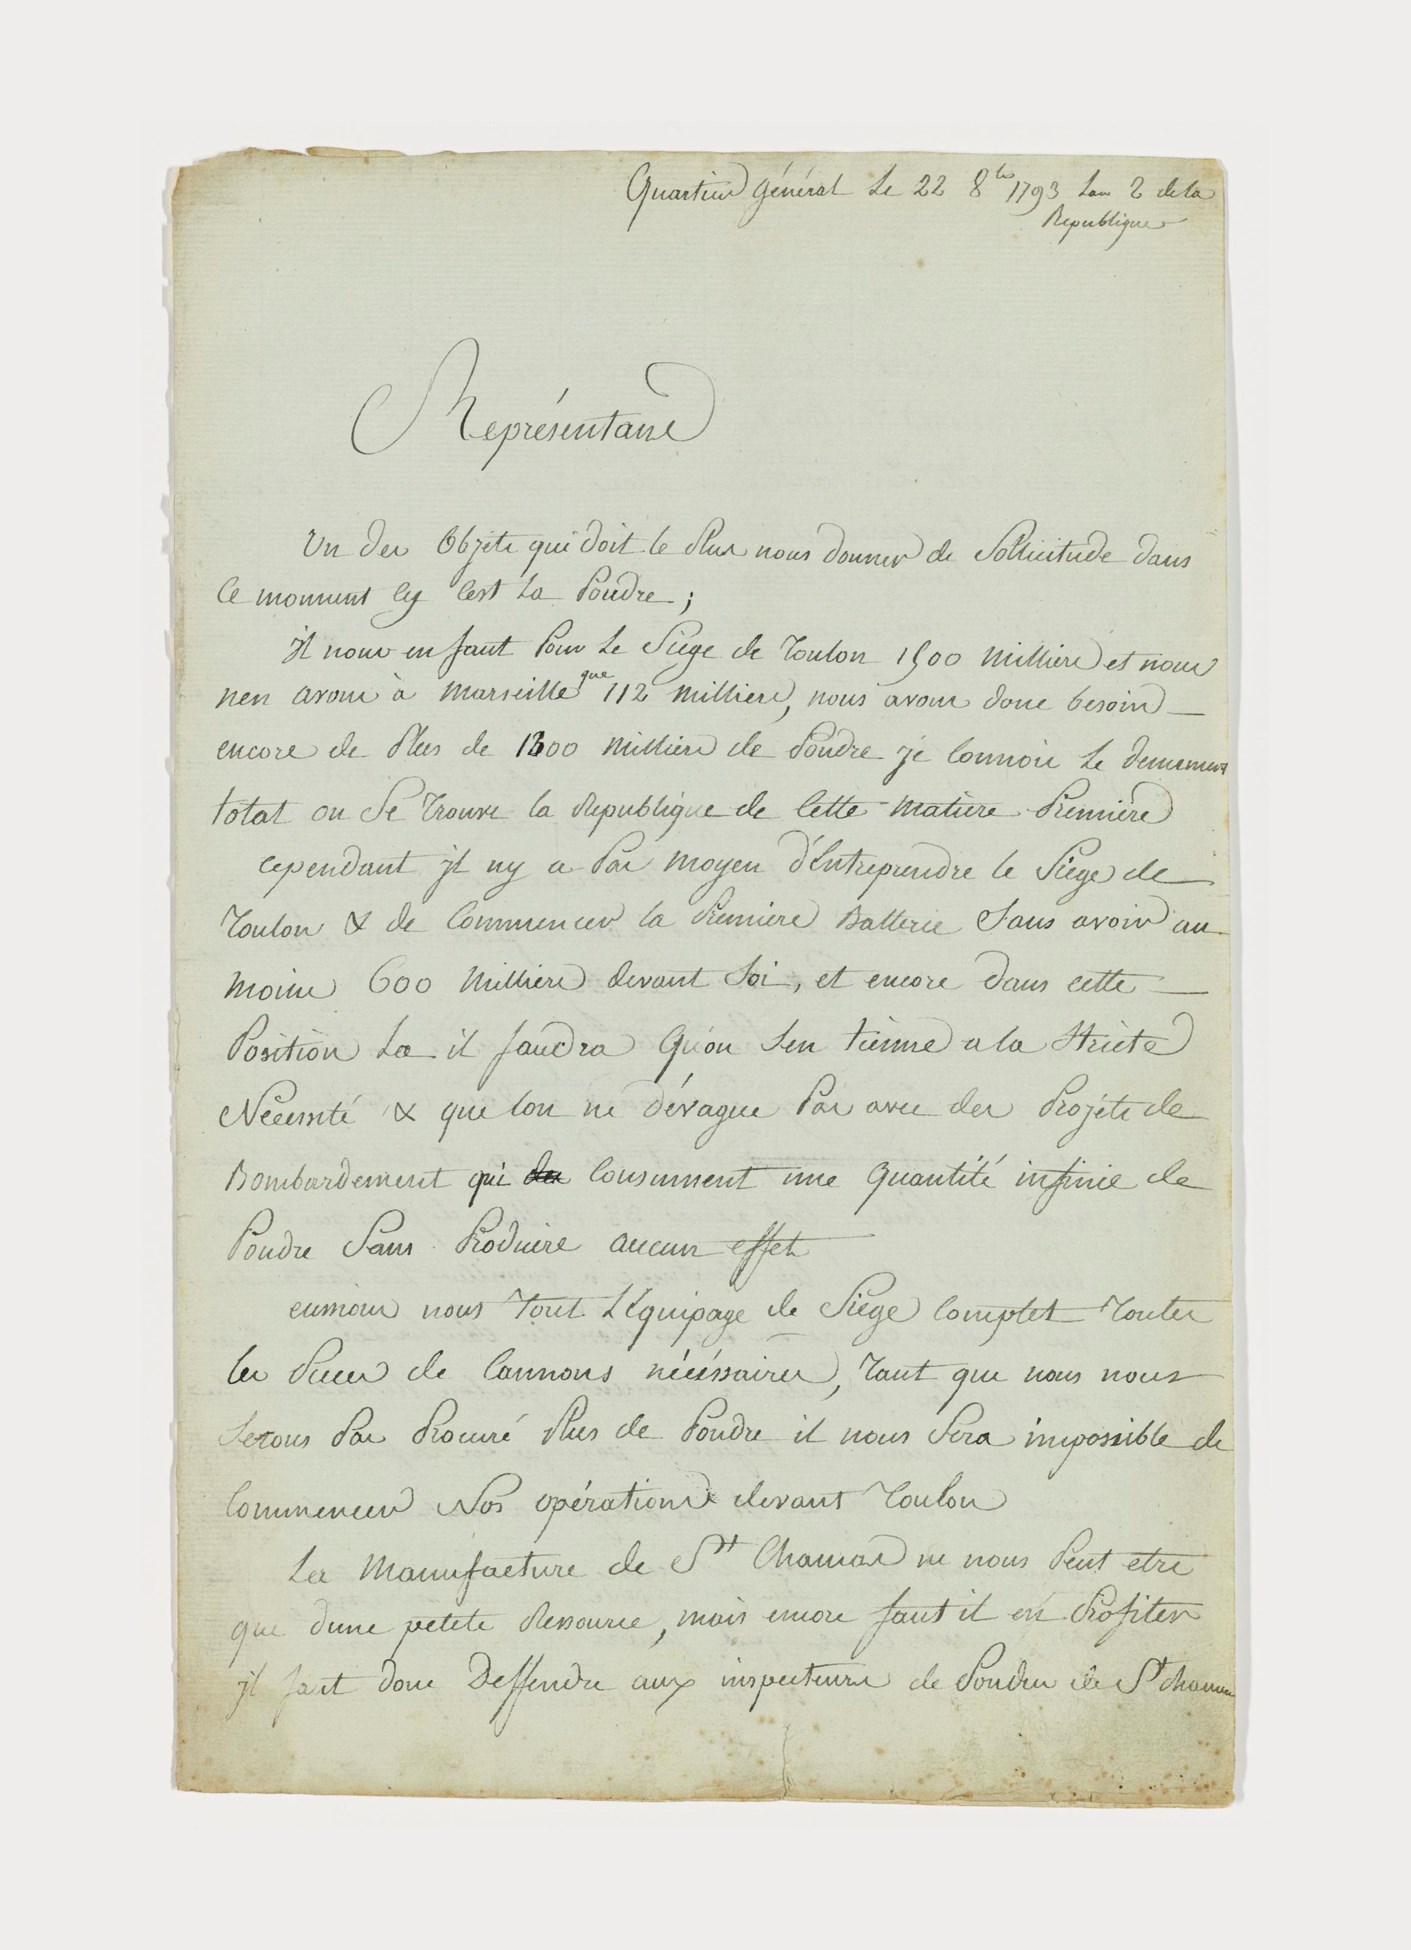 Quartier général Le 22 8bre 1793 Lan 2 de la
Republique
Représentans
Un des Objets qui doit le Plus nous donner de Sollicitude dans
Ce moment Cy C'est La Poudre ;
jl nous en faut Pour Le Siege de Toulon 1500 Milliers et nous
nen avons à Marseille que 112 Milliers, nous avons donc besoin
encore de Plus de 1300 Milliers de Poudre je Connois Le denument
total ou Se Trouve la Republique de Cette Matière Premiere
cependant jl ny a Pas moyen d'Entreprendre le Siege de
Toulon & de Commencer la Premiere Batterie Sans avoir au
moins 600 Milliers devant Soi, et encore dans cette
Position La il faudra Qu'on Sen tienne a la Stricte
Necessité & que lon ne dévague Pas avec des Projets de
Bombardement qui Consument une Quantité infinie de
Poudre Sans Produire aucun effet
eussions nous Tout L'Equipage de Siege Complet Toutes
les Pieces de Cannons nécéssaires, Tant que nous nous
Serons Pas Procuré Plus de Poudre il nous Sera impossible de
Commencer Nos opérations devant Toulon
La Manufacture de St Chamas ne nous Peut etre
que dune petite Ressource, mais encore faut il en Profiter
jl faut donc Deffendre aux inspecteurs de Poudres de St Chamas